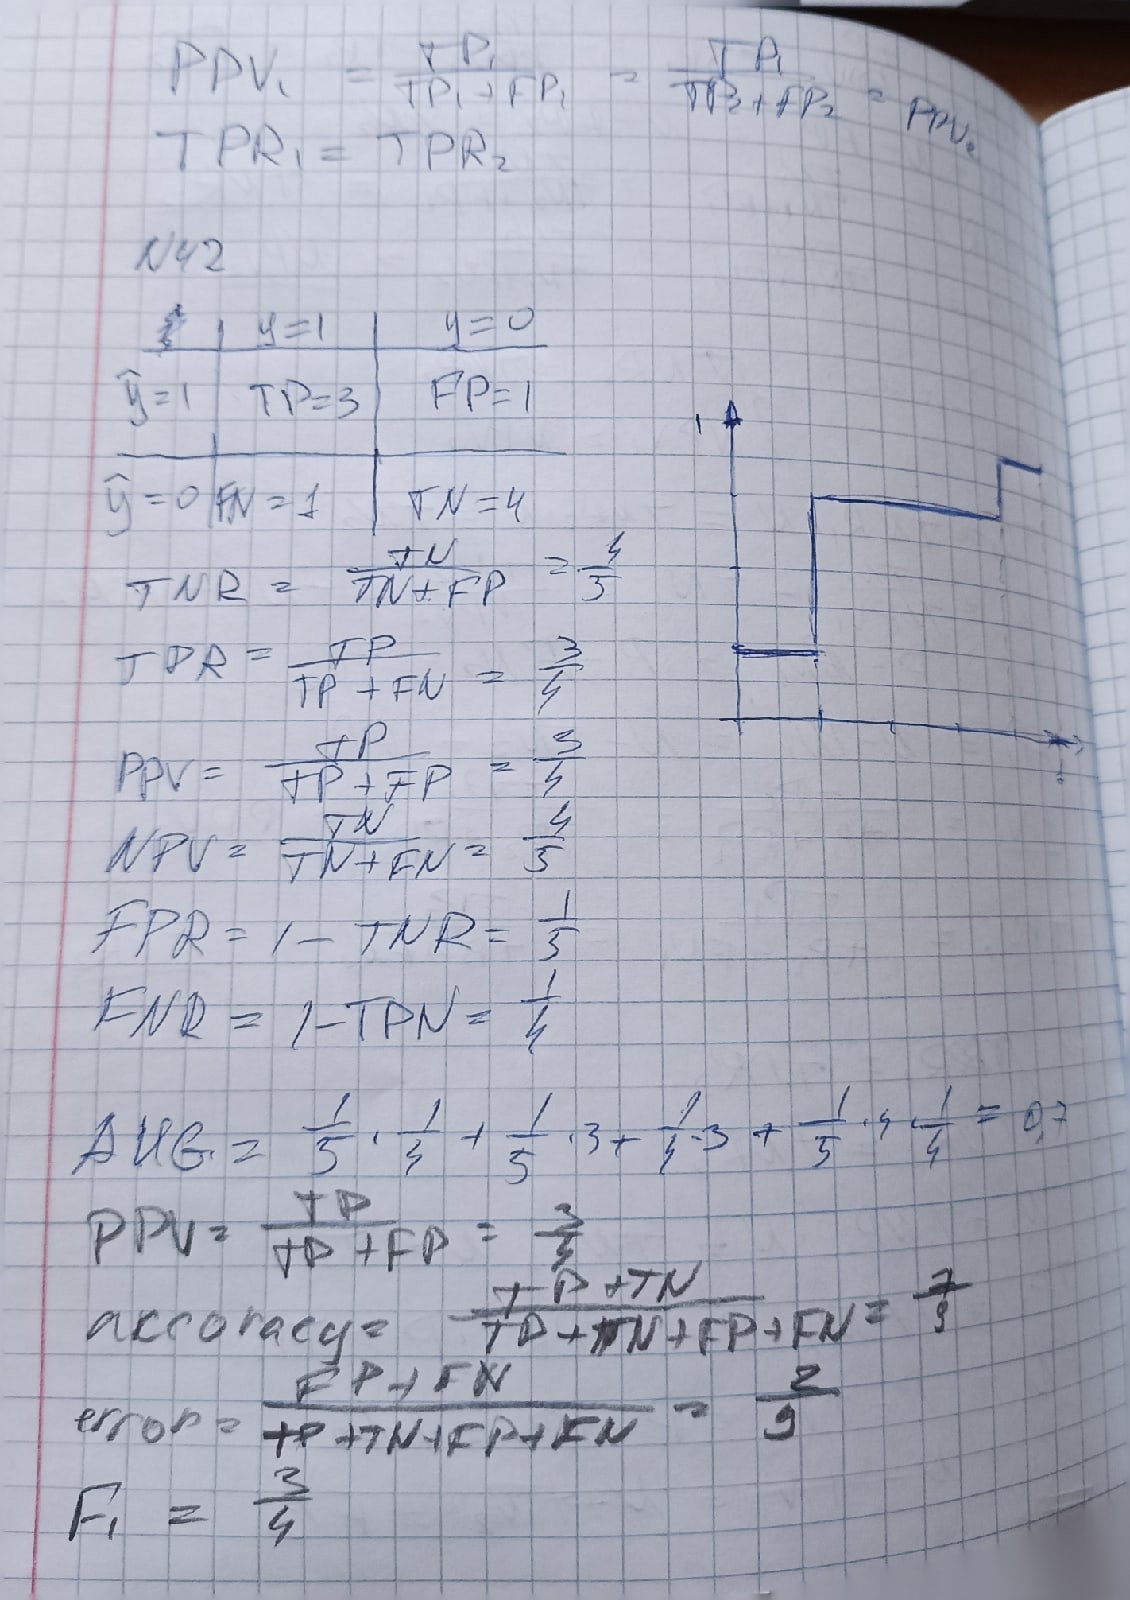 PPV₁ = TP₁/(TP₁+FP₁) = TP₁/(TP₂+FP₂) = PPV₂
TPR₁ = TPR₂
N42
y=1 | y=0
ŷ=1 | TP=3 | FP=1
ŷ=0 | FN=1 | TN=4
1
TNR = TN/(TN+FP) = 4/5
TPR = TP/(TP+FN) = 3/4
PPV = TP/(TP+FP) = 3/4
NPV = TN/(TN+FN) = 4/5
FPR = 1-TNR = 1/5
FNR = 1-TPN = 1/4
AUC = 1/5 · 1/4 + 1/5 · 3 + 1/4 · 3 + 1/5 · 4 · 1/4 = 0,7
PPV = TP/(TP+FP) = 3/4
accoracy = (TP+TN)/(TP+TN+FP+FN) = 7/9
error = (FP+FN)/(TP+TN+FP+FN) = 2/9
F₁ = 3/4